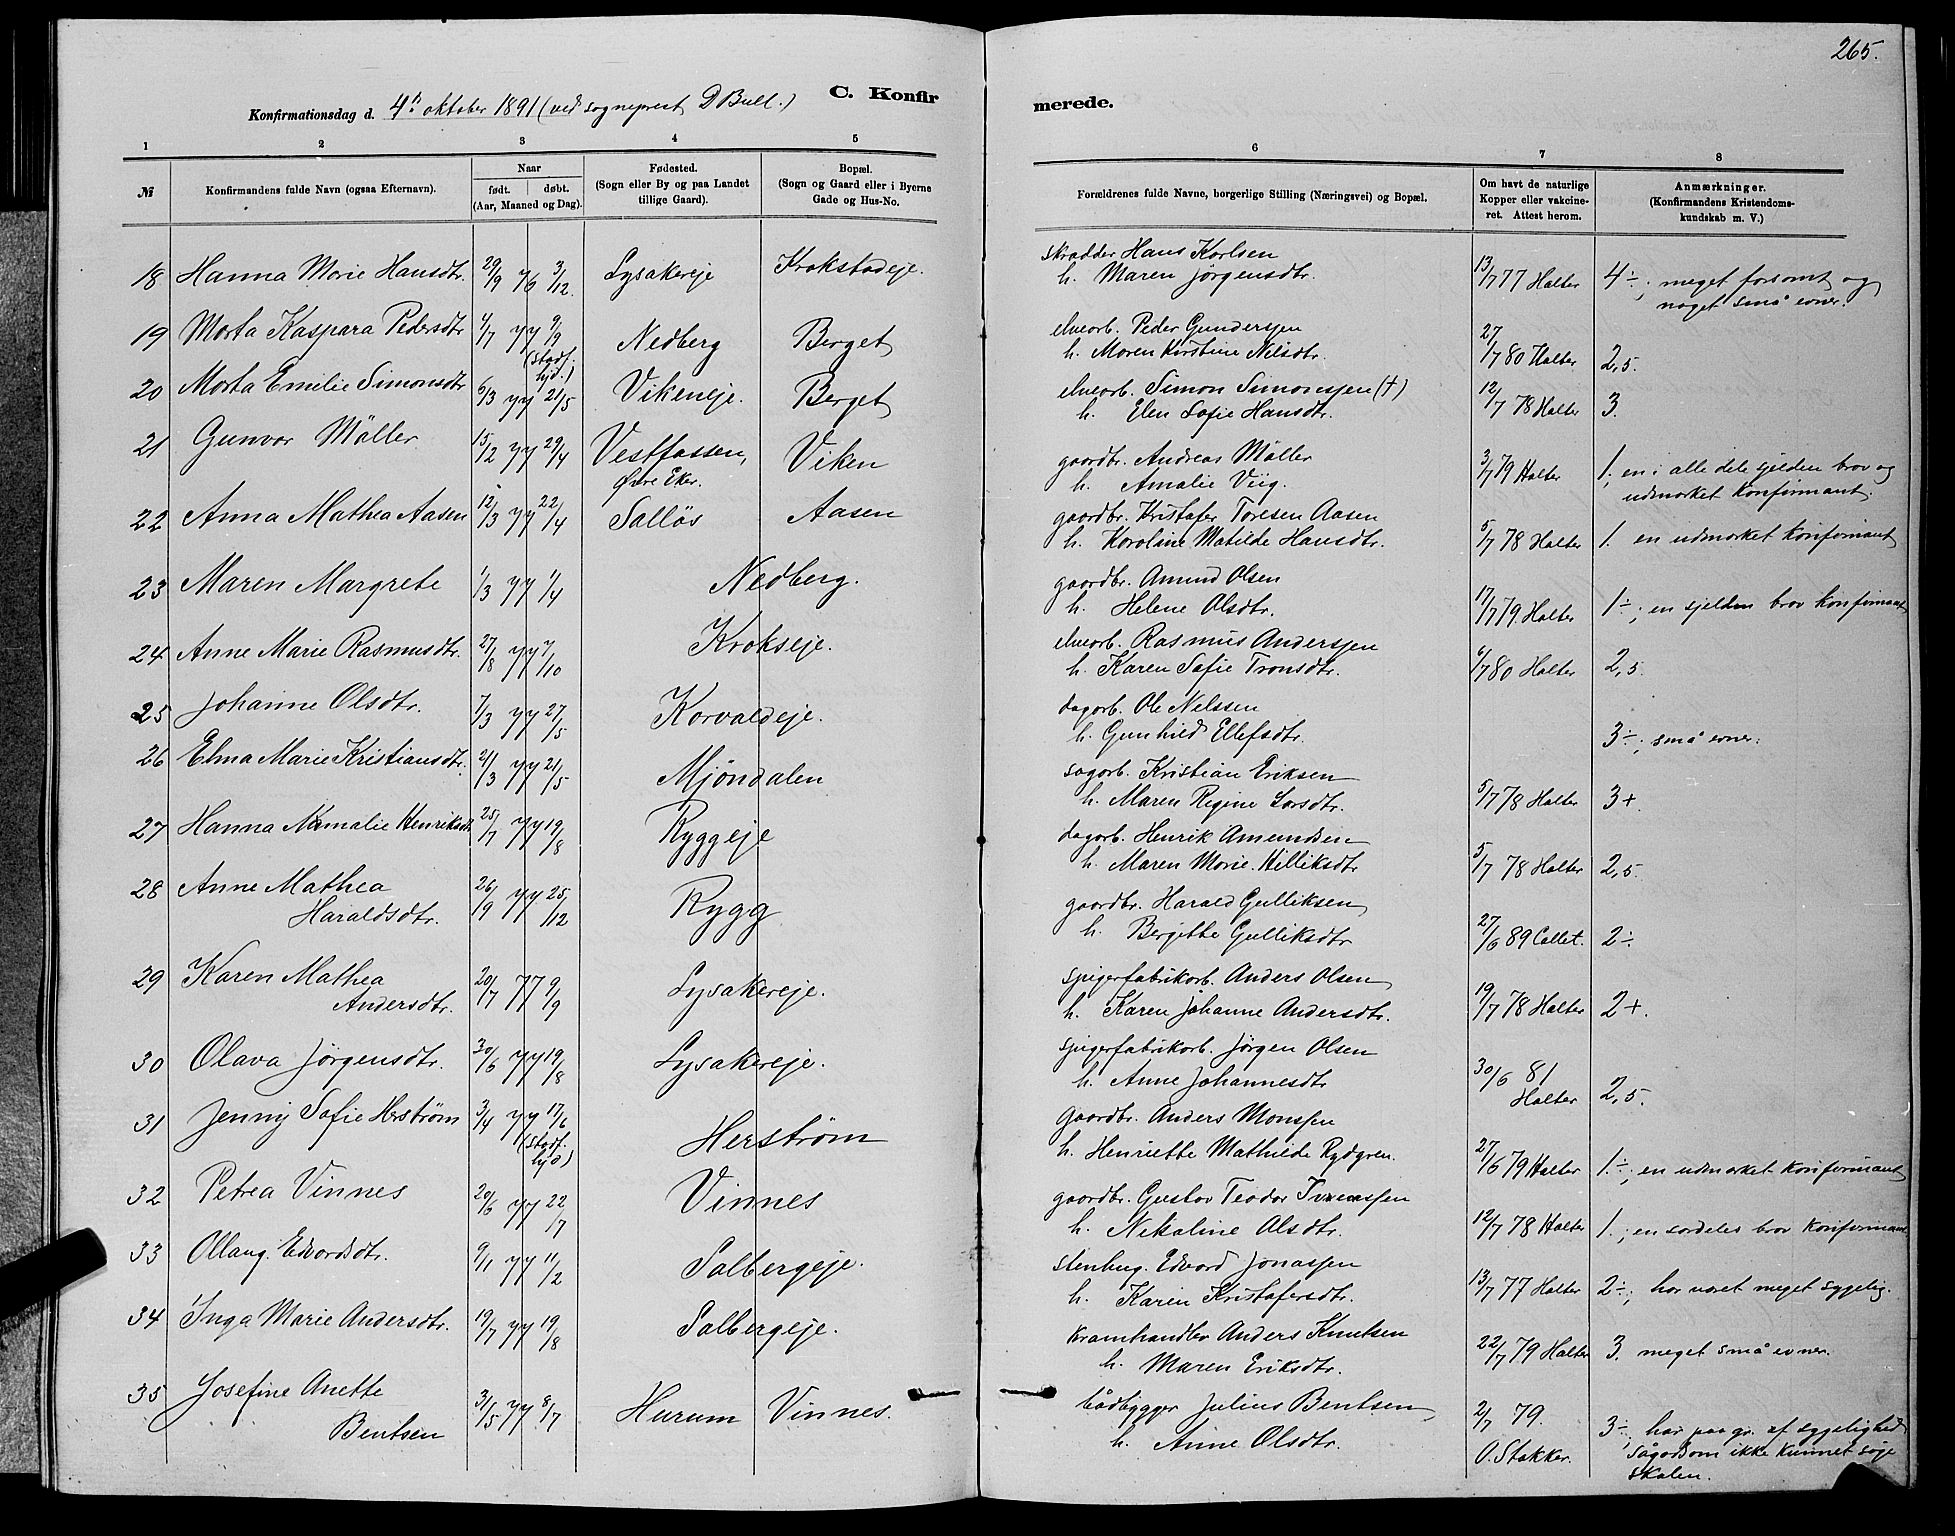 265.
Konfirmationsdag d. 4de oktober 1891 (ved sogneprest D Bull.) C. Konfirmerede.
1 2 3 4 5 6 7 8
№ Konfirmandens fulde Navn (ogsaa Efternavn). Naar født. døbt. (Aar, Maaned og Dag). Fødested. (Sogn eller By og paa Landet tillige Gaard). Bopæl. (Sogn og Gaard eller i Byerne Gade og Hus-No. Forældrenes fulde Navne, borgerlige Stilling (Næringsvei) og Bopæl. Om havt de naturlige Kopper eller vakcineret. Attest herom. Anmærkninger. (Konfirmandens Kristendomskundskab m. V.)
18 Hanna Marie Hansdtr. 29/9 76 3/12. Lysakereje Krokstadeje. skrædder Hans Karlsen
h. Maren Jørgensdtr. 13/7 77 Halter 4÷; meget forsømt og
noget små evner.
19 Marta Kaspara Pedersdtr 4/7 77 9/9 (stadf. hjd.) Nedberg Berget elvearb. Peder Gunderssen
h. Maren Kirstine Nilsdtr. 27/7 80 Halter 2,5.
20 Marta Emilie Simonsdtr 6/3 77 21/5 Vikeneje. Berget elvearb. Simon Simonssen (†)
h. Elen Sofie Hansdtr. 12/7 78 Halter 3.
21 Gunvor Möller 15/2 77 29/4 Vestfossen, Øvre Eker. Viken gaardbr. Andreas Möller
h. Amalie Viig. 3/7 79 Halter 1; en i alle dele sjelden brav og
udmærket konfirmant.
22 Anna Mathea Aasen 12/3 77 22/4 Solløs Aasen gaardbr. Kristofer Toresen Aasen
h. Karoline Matilde Hansdtr. 5/7 78 Halter 1. en udmærket konfirmant
23 Maren Margrete 1/3 77 1/4 Nedberg. gaardbr. Amund Olsen
h. Helene Olsdtr. 17/7 79. Halter 1÷; en sjelden brav konfirmant
24 Anne Marie Rasmusdtr. 27/8 77 7/10 Krokseje. elvearb. Rasmus Anderssen
h. Karen Sofie Tronsdtr. 6/7 80 Halter 2,5.
25 Johanne Olsdtr. 7/3 77 27/5 Korvaldeje. dagarb. Ole Nelssen
h. Gunhild Ellefsdtr. 3÷; små evner.
26 Elma Marie Kristiansdtr. 21/3 77 21/5 Mjöndalen sagarb. Kristian Eriksen
h. Maren Regine Larsdtr. 5/7 78 Halter 3+.
27 Hanna Namalie Henriksdtr 25/7 77 19/8 Ryggeje dagarb. Henrik Amundsen
h. Maren Marie Hilliksdtr 5/7 78 Halter 2,5.
28 Anne Mathea
Haraldsdtr. 26/9 77 25/12 Rygg gaardbr. Harald Gulliksen
h. Bergitte Gulliksdtr 27/6 89 Collet. 2÷
29 Karen Mathea
Andersdtr. 20/7 77 9/9 Lysakereje. spigerfabrikarb. Anders Olsen
h. Karen Johanne Andersdtr. 19/7 78 Halter 2+.
30 Olava Jørgensdtr. 30/6 77 19/8 Lysakereje. spigerfabrikarb. Jørgen Olsen
h. Anne Johannesdtr 30/6 81 Halter 2,5.
31 Jenny Sofie Herstrøm 3/4 77 17/6 (stadf. hjd) Herstrøm Gaardbr. Anders Monssen
h. Henriette Mathilde Rydgren. 27/6 79 Halter 1.÷; en udmærket konfirmant
32 Petrea Vinnes 20/6 77 22/7 Vinnes gaardbr. Gustav Teodor Iverssen
h. Nikoline Olsdtr. 12/7 78 Halter 1.; en særdeles brav konfirmant
33 Ollaug. Edvardsdtr. 9/1 77 11/2 Solbergeje. stenhug. Edvard Jonassen
h. Karen Kristofersdtr. 13/7 77 Halter 2÷; har været meget sygelig.
34 Inga Marie Andersdtr. 19/7 77 19/8 Solbergeje. kramhandler Anders Knutsen
h. Maren Eriksdtr. 22/7 79 Halter 3. meget små evner.
35 Josefine Anette
Bentsen 31/5 77. 8/7 Hurum Vinnes. bådbygger Julius Bentsen
h. Anne Olsdtr. 2/7 79. O. Stokker. 3÷, har paa gr. af sygelighed
sågodtsom ikke kunnet søge
skolen.